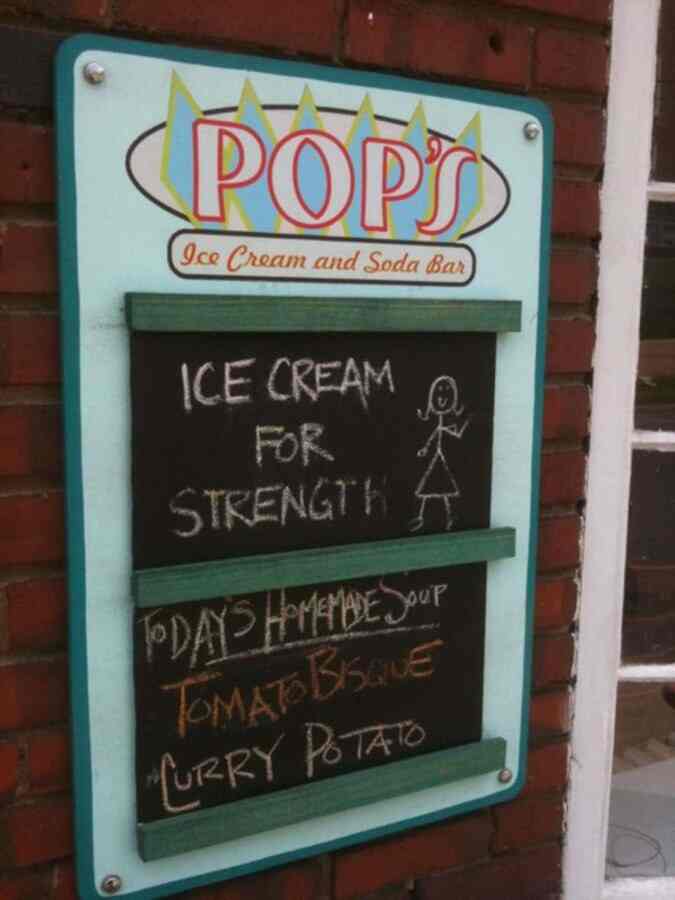 POP'S
Ice Cream and Soda Bar
ICE CREAM
FOR
STRENGTH
TODAY'S HOMEMADE SOUP
TOMATO BISQUE
CURRY POTATO